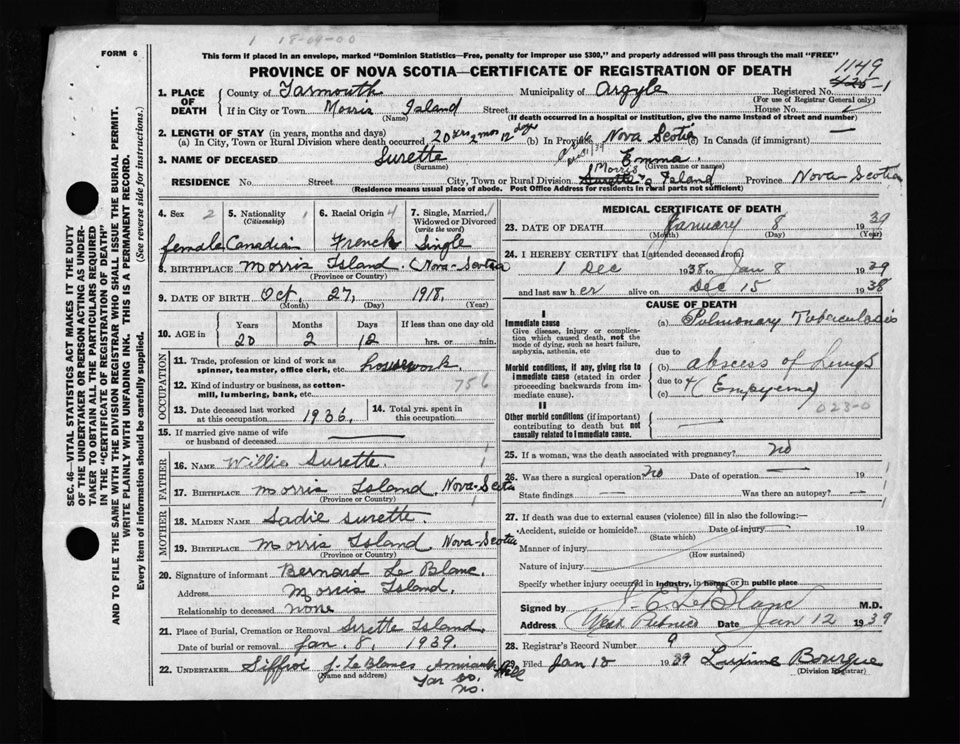 1 18-09-00
FORM 6
This form if placed in an envelope, marked "Dominion Statistics—Free, penalty for improper use $300," and properly addressed will pass through the mail "FREE"
PROVINCE OF NOVA SCOTIA—CERTIFICATE OF REGISTRATION OF DEATH
1149
1. PLACE OF DEATH { County of Yarmouth Municipality of Argyle Registered No. -1
(For use of Registrar General only)
If in City or Town Morris Island Street House No.
(Name) (If death occurred in a hospital or institution, give the name instead of street and number)
2. LENGTH OF STAY (in years, months and days)
(a) In City, Town or Rural Division where death occurred 20 yrs 2 mos 12 days (b) In Province Nova Scotia (c) In Canada (if immigrant) —
3. NAME OF DECEASED Surette Emma.
(Surname) (Given name or names)
RESIDENCE No. Street City, Town or Rural Division Morris Island Province Nova-Scotia
(Residence means usual place of abode. Post Office Address for residents in rural parts not sufficient)
4. Sex 2 female
5. Nationality 1 (Citizenship) Canadian
6. Racial Origin 4 French
7. Single, Married, Widowed or Divorced (write the word) Single
8. BIRTHPLACE Morris Island. (Nova-Scotia
(Province or Country)
9. DATE OF BIRTH Oct. 27, 1918.
(Month) (Day) (Year)
10. AGE in Years Months Days If less than one day old
20 2 12 hrs. or min.
OCCUPATION
11. Trade, profession or kind of work as spinner, teamster, office clerk, etc. housework
12. Kind of industry or business, as cotton-mill, lumbering, bank, etc. 756
13. Date deceased last worked at this occupation 1936.
14. Total yrs. spent in this occupation
15. If married give name of wife or husband of deceased —
FATHER
16. NAME Willie Surette.
17. BIRTHPLACE Morris Island, Nova-Scotia
(Province or Country)
MOTHER
18. MAIDEN NAME Sadie Surette.
19. BIRTHPLACE Morris Island Nova-Scotia
(Province or Country)
20. Signature of informant Bernard Le Blanc.
Address Morris Island.
Relationship to deceased none
21. Place of Burial, Cremation or Removal Surette Island.
Date of burial or removal Jan. 8, 1939.
22. UNDERTAKER J. LeBlanc Hill
(Name and address)
Yar Co.
N.S.
MEDICAL CERTIFICATE OF DEATH
23. DATE OF DEATH January 8 1939
(Month) (Day) (Year)
24. I HEREBY CERTIFY that I attended deceased from
1 Dec 1938 to Jan 8 1939
and last saw her alive on Dec 15 1938
CAUSE OF DEATH
I
Immediate cause (a) Pulmonary Tuberculosis
Give disease, injury or complication which caused death, not the mode of dying, such as heart failure, asphyxia, asthenia, etc
due to
Morbid conditions, if any, giving rise to immediate cause (stated in order proceeding backwards from immediate cause).
(b) abscess of Lungs
due to
(c) (Empyema)
023-0
II
Other morbid conditions (if important) contributing to death but not causally related to immediate cause.
25. If a woman, was the death associated with pregnancy? no
26. Was there a surgical operation? no Date of operation — 19
State findings — Was there an autopsy? —
27. If death was due to external causes (violence) fill in also the following:—
Accident, suicide or homicide? Date of injury 19
(State which)
Manner of injury
(How sustained)
Nature of injury
Specify whether injury occurred in industry, in home, or in public place
Signed by E. LeBlanc M.D.
Address West Pubnico Date Jan 12 1939
28. Registrar's Record Number 9
29. Filed Jan 1939 Bourque
(Division Registrar)
SEC. 46—VITAL STATISTICS ACT MAKES IT THE DUTY
OF THE UNDERTAKER OR PERSON ACTING AS UNDER-
TAKER TO OBTAIN ALL THE PARTICULARS REQUIRED
IN THE "CERTIFICATE OF REGISTRATION OF DEATH"
AND TO FILE THE SAME WITH THE DIVISION REGISTRAR WHO SHALL ISSUE THE BURIAL PERMIT.
WRITE PLAINLY WITH UNFADING INK. THIS IS A PERMANENT RECORD.
Every item of information should be carefully supplied. (See reverse side for instructions.)